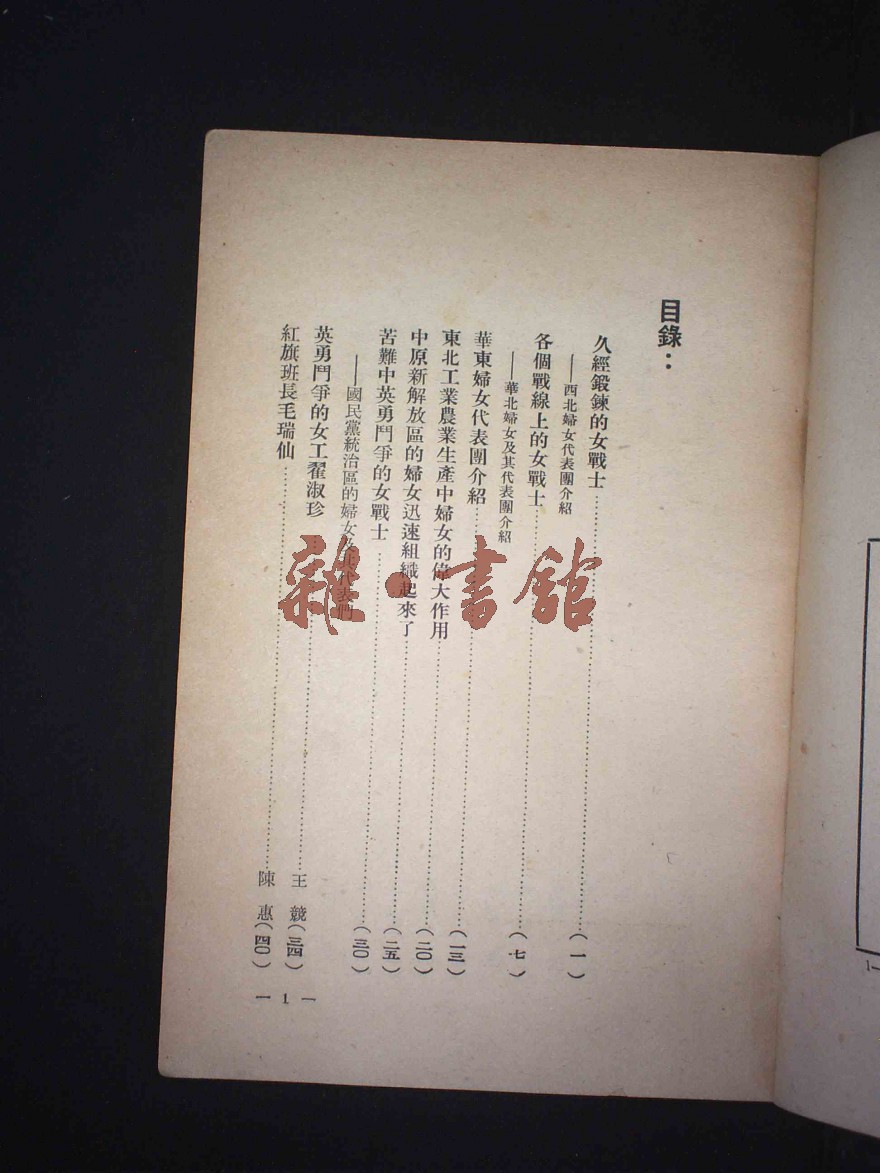 目錄：
久經鍛鍊的女戰士……（一）
——西北婦女代表團介紹
各個戰線上的女戰士……（七）
——華北婦女及其代表團介紹
華東婦女代表團介紹……（一三）
東北工業農業生產中婦女的偉大作用……（二〇）
中原新解放區的婦女迅速組織起來了……（二五）
苦難中英勇鬥爭的女戰士……（三〇）
——國民黨統治區的婦女及其代表們
英勇鬥爭的女工翟淑珍……王競（三四）
紅旗班長毛瑞仙……陳惠（四〇）
— 1 —
雜·書館